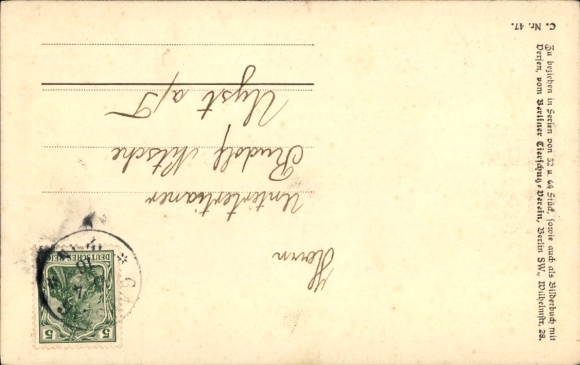 Herrn
Untertertianer
Rudolf Nitsche
Uyst a/T
DEUTSCHES REICH
5
Zu beziehen in Serien von 32 u. 64 Stück, sowie auch als Bilderbuch mit
Versen, vom Berliner Tierschutz-Verein, Berlin SW., Wilhelmstr. 28.
C. Nr. 47.